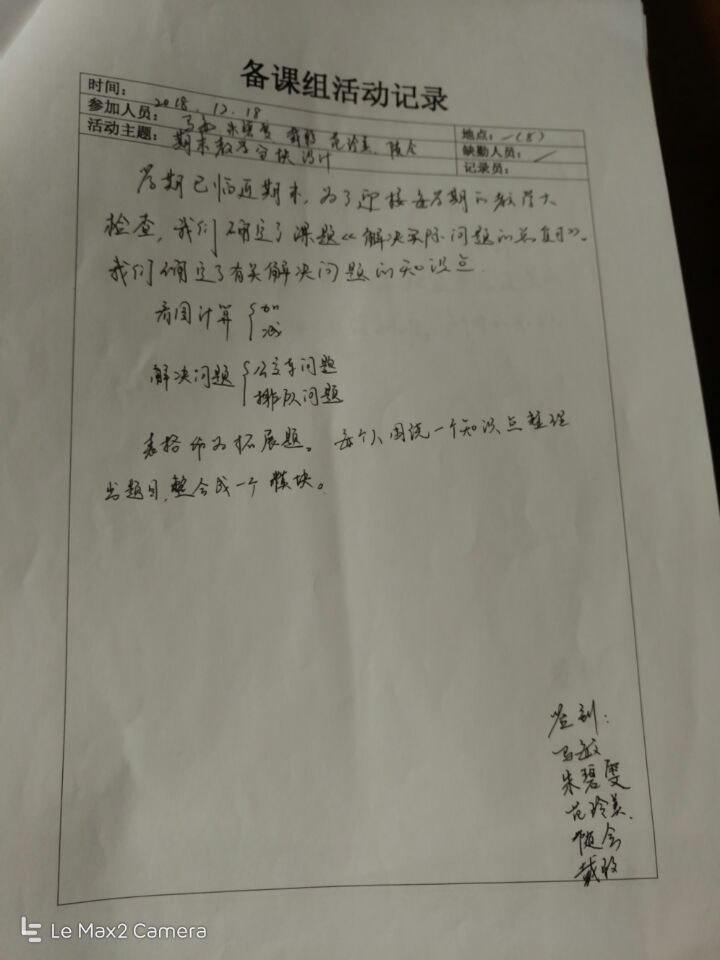 备课组活动记录
时间： 2018.12.18 地点： 一(8)
参加人员： 马敏 朱碧雯 戴敏 范玲美、随会 缺勤人员： /
活动主题： 期末教学分块设计 记录员：
学期已临近期末，为了迎接每学期的教学大
检查，我们确定了课题《解决实际问题的总复习》。
我们确定了有关解决问题的知识点.
看图计算 { 加
减
解决问题 { 公交车问题
排队问题
表格 为拓展题。每个人围绕一个知识点整理
出题目，整合成一个模块。
签到：
马敏
朱碧雯
范玲美.
随会
戴敏
Le Max2 Camera